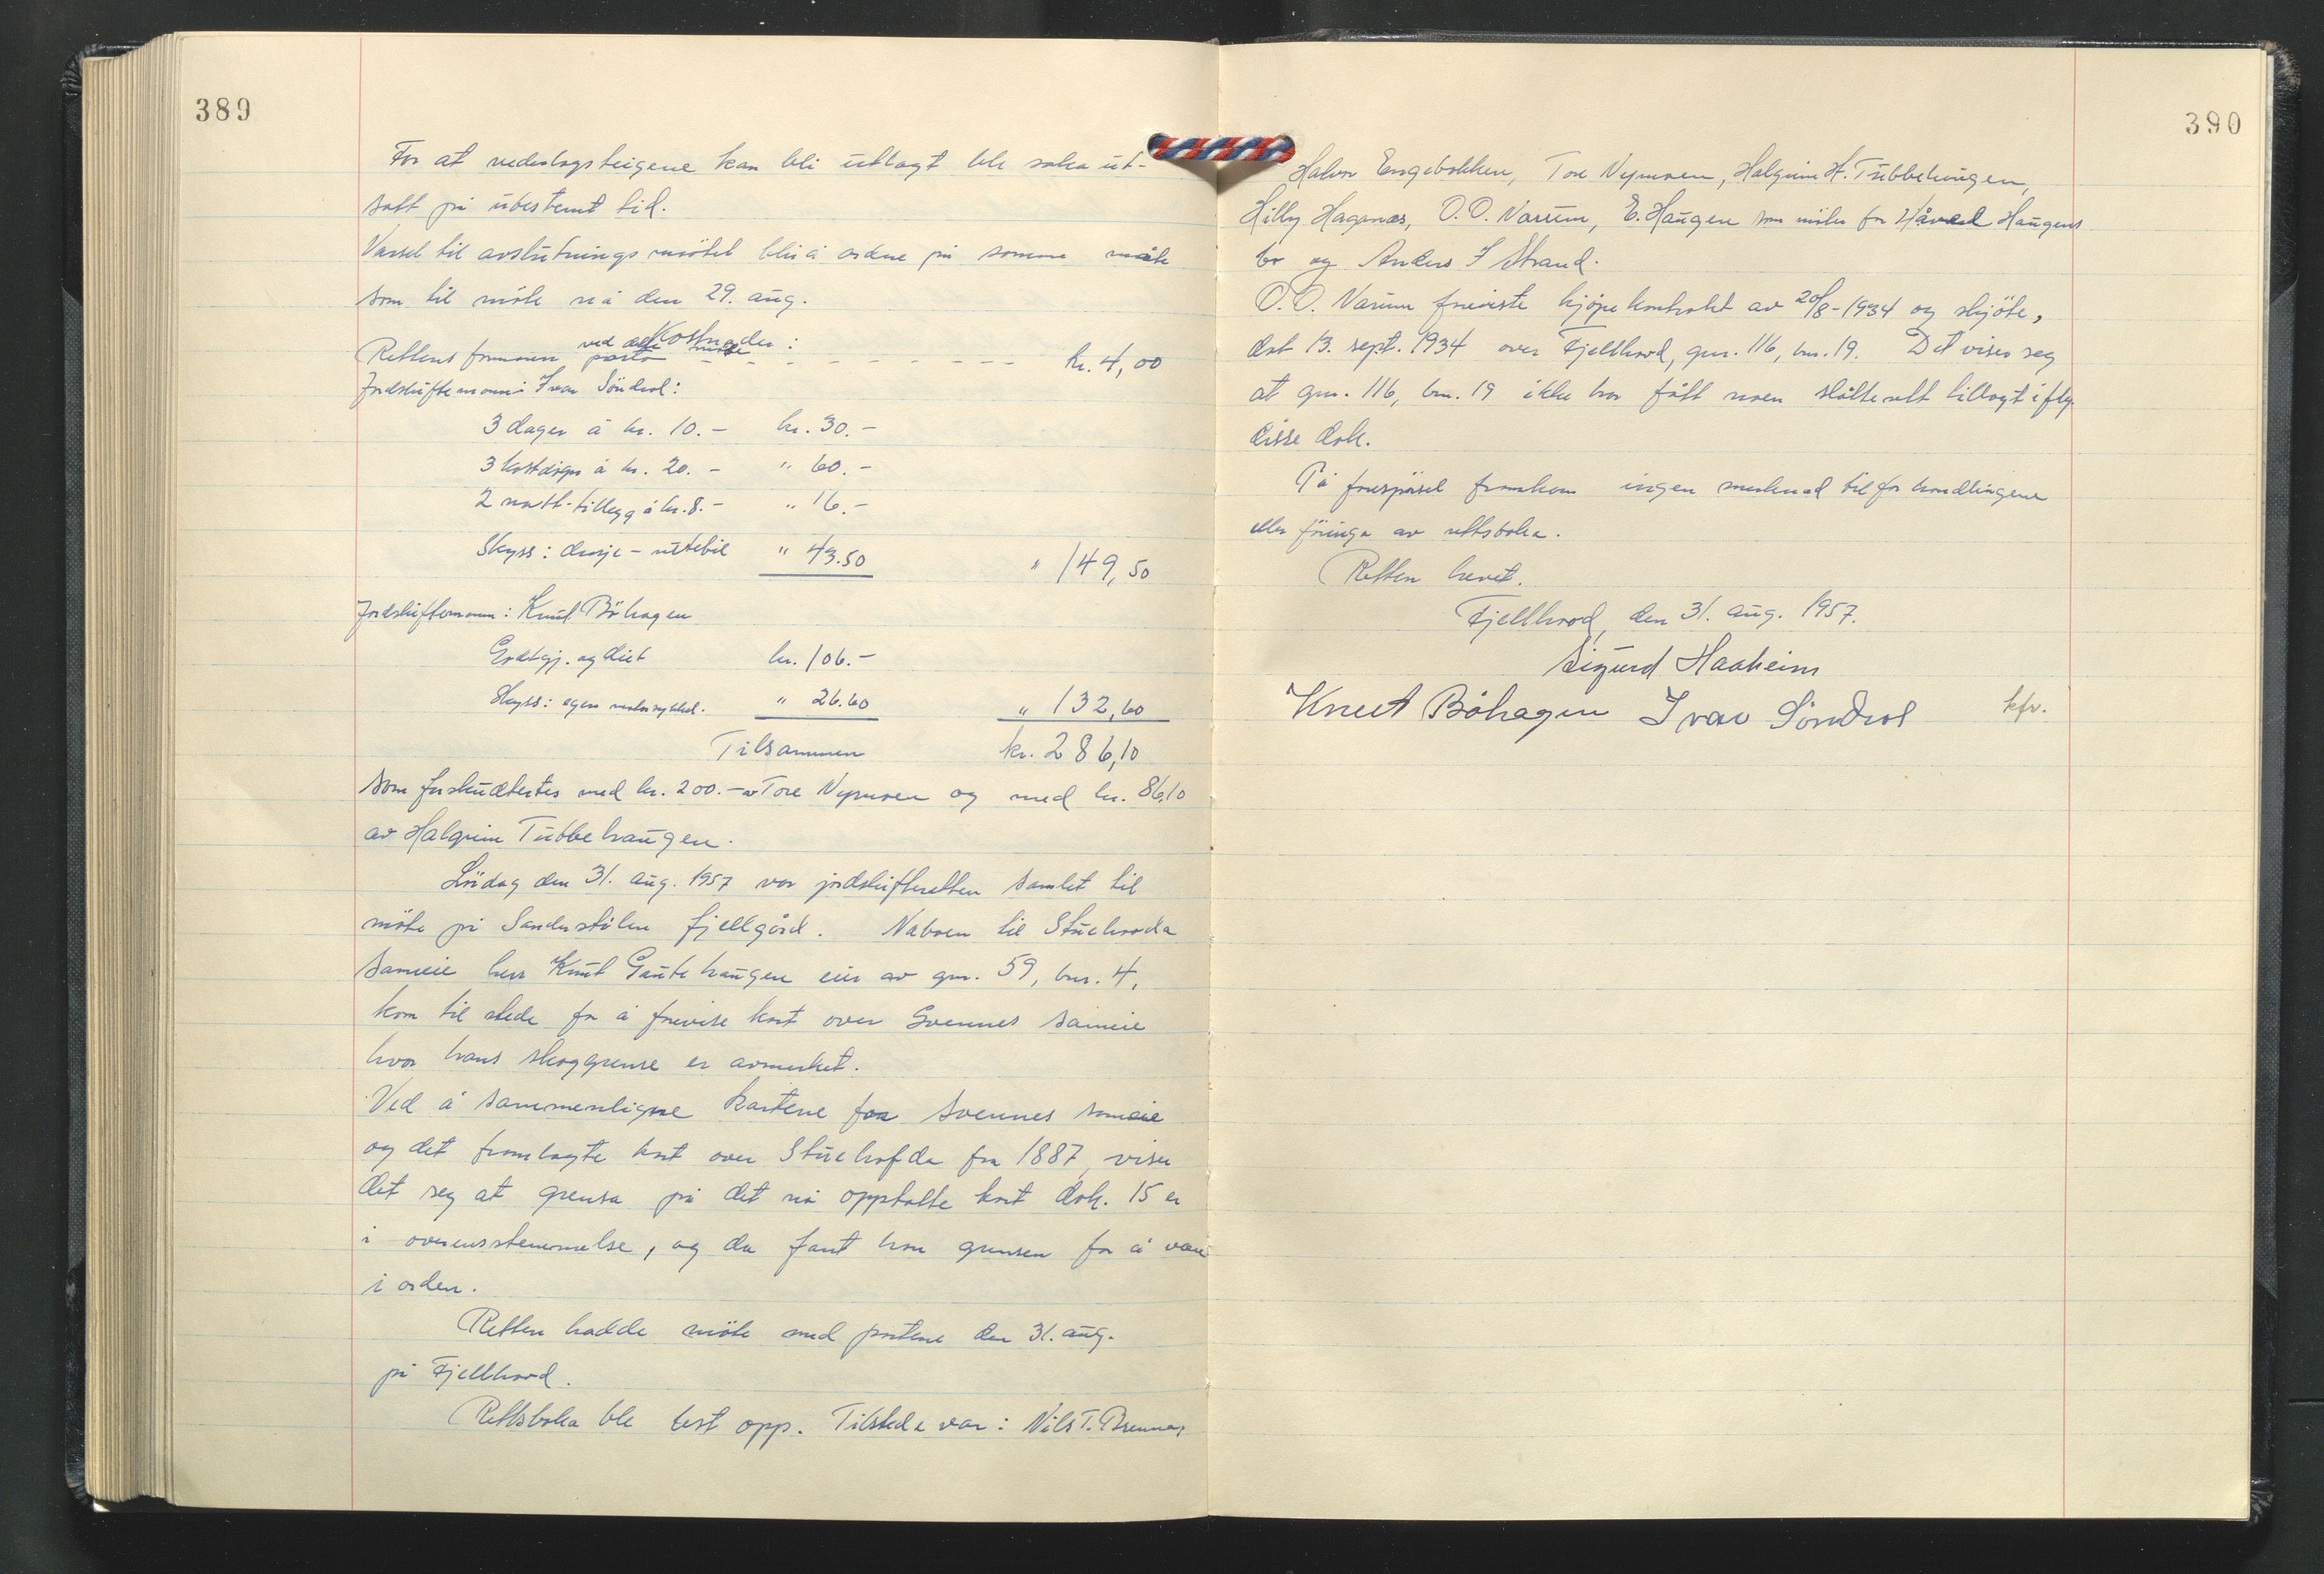 389
For at vederlagsteigene kan bli utlagt ble saka ut-
satt på ubestemt tid.
Varsel til avslutningsmötet blir å ordne på samme måte
som til möte nå den 29. aug.
Kostnader:
ved dette möte
Rettens formann porto - - - - - - - - - kr. 4,00
Jordskiftemann: Ivar Söndrol:
3 dager á kr. 10.- kr. 30.-
3 kostdøgn á kr. 20.- " 60.-
2 natt-tillegg á kr. 8.- " 16.-
Skyss: drosje - rutebil " 43.50 " 149,50
Jordskiftemann: Knut Böhagen
Godtgj. og diet kr. 106.-
Skyss: egen motorsykkel. " 26.60 " 132,60
Tilsammen kr. 286,10
som forskuttertes med kr. 200.- av Tore Nymoen og med kr. 86,10
av Halgrim Tubbehaugen.
Lördag den 31. aug. 1957 var jordskifteretten samlet til
möte på Sanderstölen fjellgård. Naboen til Stuehovda
sameie herr Knut Gautehaugen eier av gnr. 59, bnr. 4,
kom til stede for å forevise kart over Svennes sameie
hvor hans skoggrense er avmerket.
Ved å sammenligne kartene fra Svennes sameie
og det framlagte kart over Stuehofda fra 1887, viser
det seg at grensa på det nå opptatte kart dok. 15 er
i overensstemmelse, og da fant han grensen for å være
i orden.
Retten hadde möte med partene den 31. aug.
på Fjellhovd.
Rettsboka ble lest opp. Tilstede var: Nils T. Brenna,
390
Halvor Engebakken, Tore Nymoen, Halgrim H. Tubbehaugen,
Hilly Haganæs, O. O. Narum, E. Haugen som möter for Håvard Haugens
bo og Anders I Strand.
O. O. Narum foreviste kjöpekontrakt av 20/8-1934 og skjöte,
dat 13. sept. 1934 over Fjellhovd, gnr. 116, bnr. 19. Det viser seg
at gnr. 116, bnr. 19 ikke har fått noen slåtterett tillagt iflg.
disse dok.
På forespörsel framkom ingen merknad til forhandlingene
eller föringa av rettsboka.
Retten hevet.
Fjellhovd, den 31. aug. 1957.
Sigurd Haaheim
Knut Böhagen Ivar Söndrol kfr.